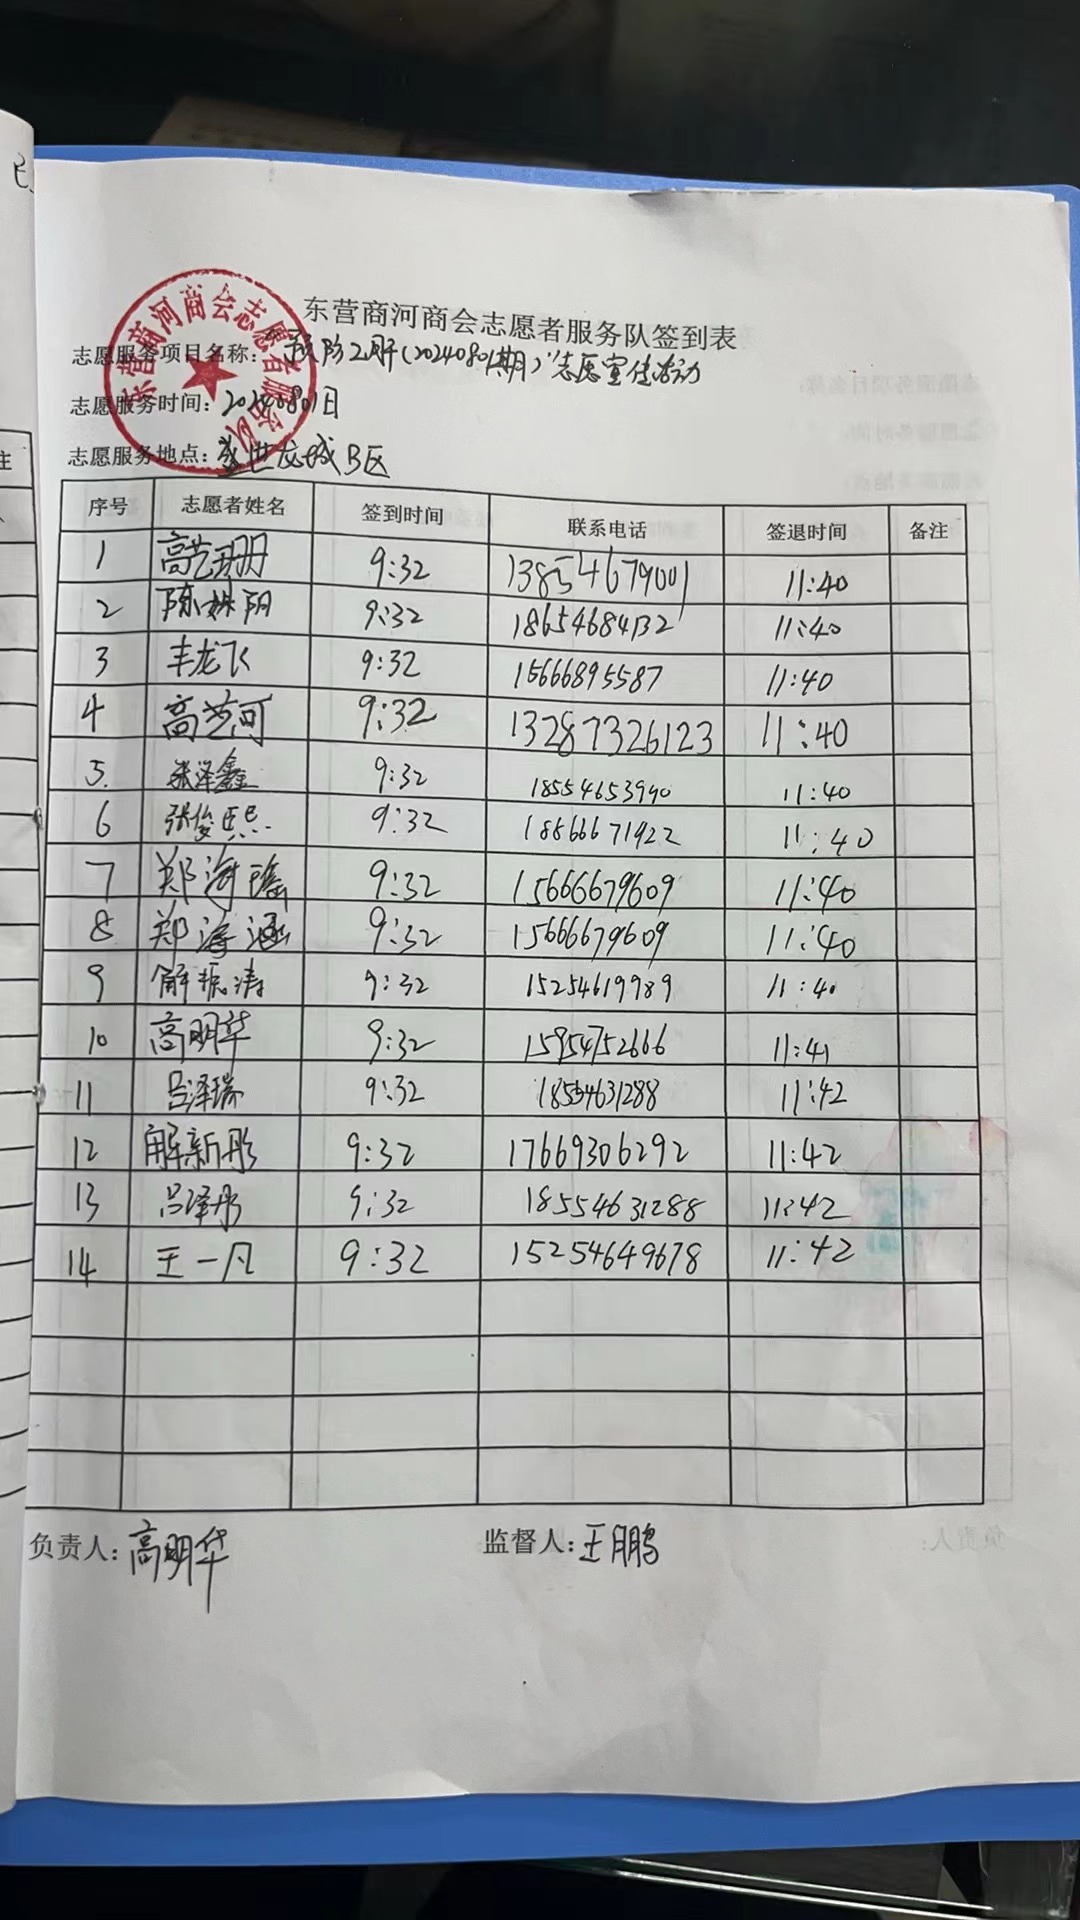 东营商河商会志愿者服务队
东营商河商会志愿者服务队签到表
志愿服务项目名称：“预防乙肝（20240801期）”志愿宣传活动
志愿服务时间：20240801日
志愿服务地点：盛世龙城B区
序号 志愿者姓名 签到时间 联系电话 签退时间 备注
1 高艺珊 9:32 13854679001 11:40
2 陈姝阳 9:32 18654684132 11:40
3 丰龙飞 9:32 15666895587 11:40
4 高艺可 9:32 13287326123 11:40
5. 张泽鑫 9:32 18554653940 11:40
6 张俊熙 9:32 18866671922 11:40
7 郑海瑶 9:32 15666679609 11:40
8 郑海涵 9:32 15666679609 11:40
9 解振涛 9:32 15254619989 11:40
10 高明华 9:32 15954752666 11:41
11 吕泽瑞 9:32 18554631288 11:42
12 解新彤 9:32 17669306292 11:42
13 吕泽彤 9:32 18554631288 11:42
14 王一凡 9:32 15254649678 11:42
负责人：高明华 监督人：王鹏